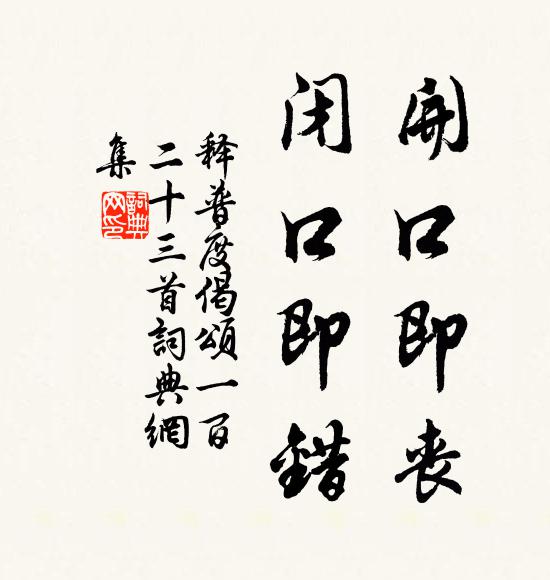 開口即丧
闭口即錯
释普度偈頌一百
二十三首詞典網
集
詞典
网印